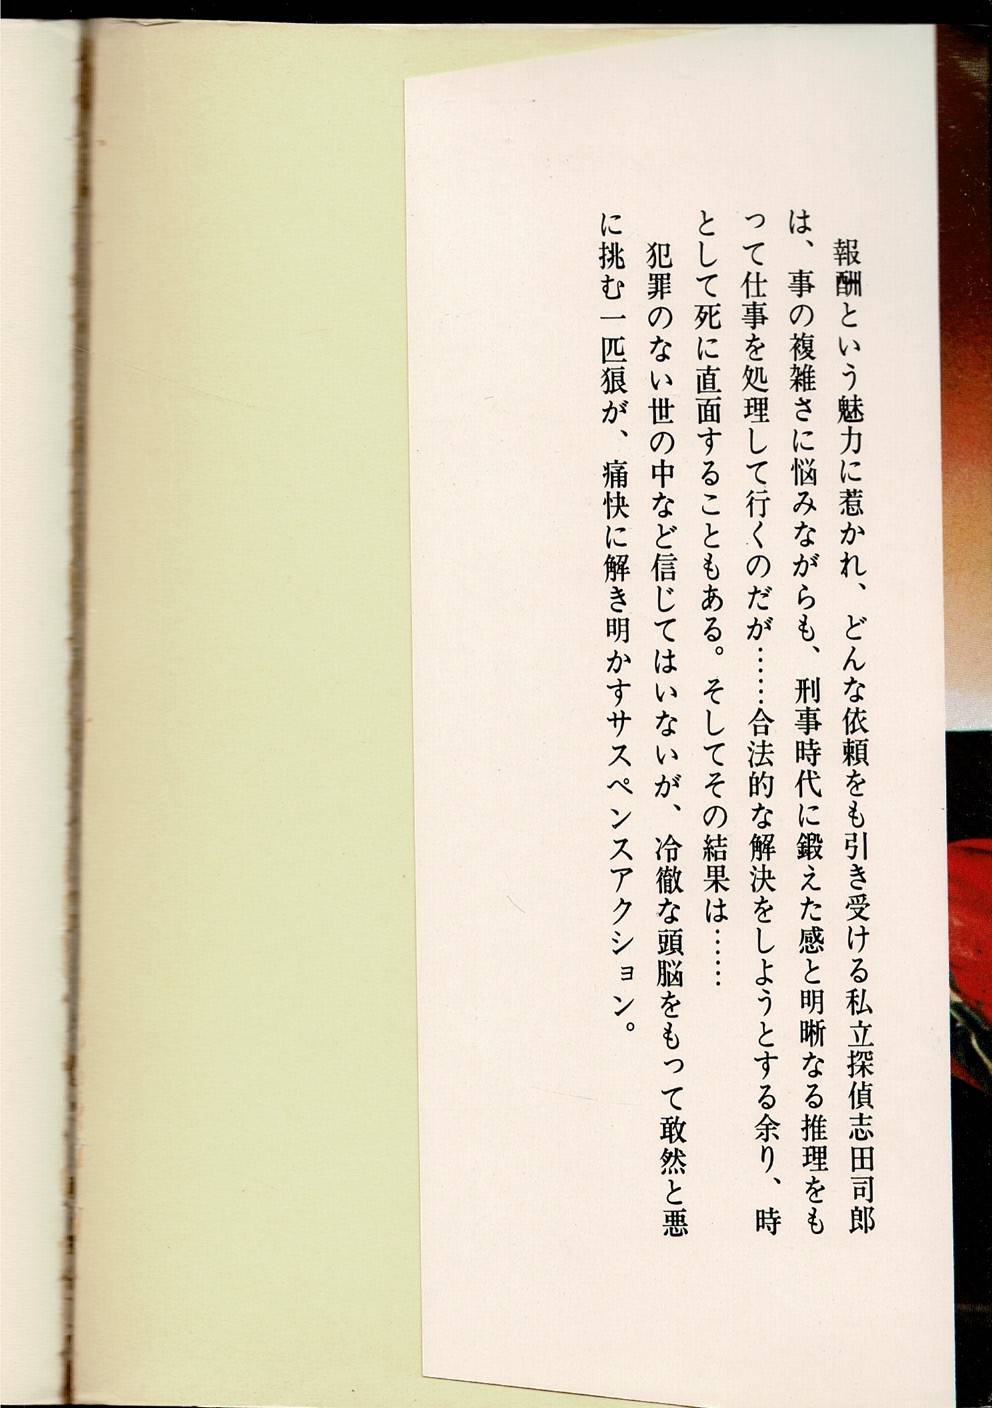 報酬という魅力に惹かれ、どんな依頼をも引き受ける私立探偵志田司郎
は、事の複雑さに悩みながらも、刑事時代に鍛えた感と明晰なる推理をも
って仕事を処理して行くのだが……合法的な解決をしようとする余り、時
として死に直面することもある。そしてその結果は……
犯罪のない世の中など信じてはいないが、冷徹な頭脳をもって敢然と悪
に挑む一匹狼が、痛快に解き明かすサスペンスアクション。